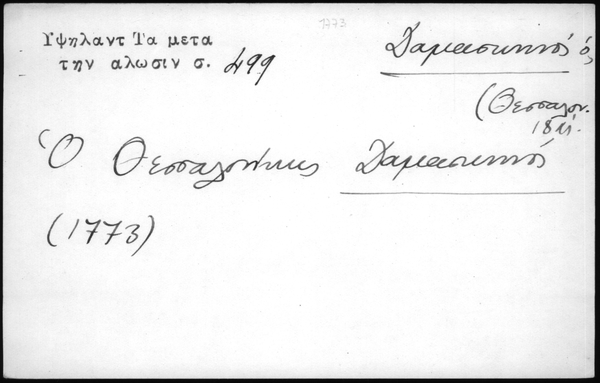 1773
Ὑψηλαντ Τα μετα
την αλωσιν σ. 499
Δαμασκηνός ὁ
(Θεσσαλον.
18 αἰ.
Ὁ Θεσσαλονίκης Δαμασκηνός
(1773)